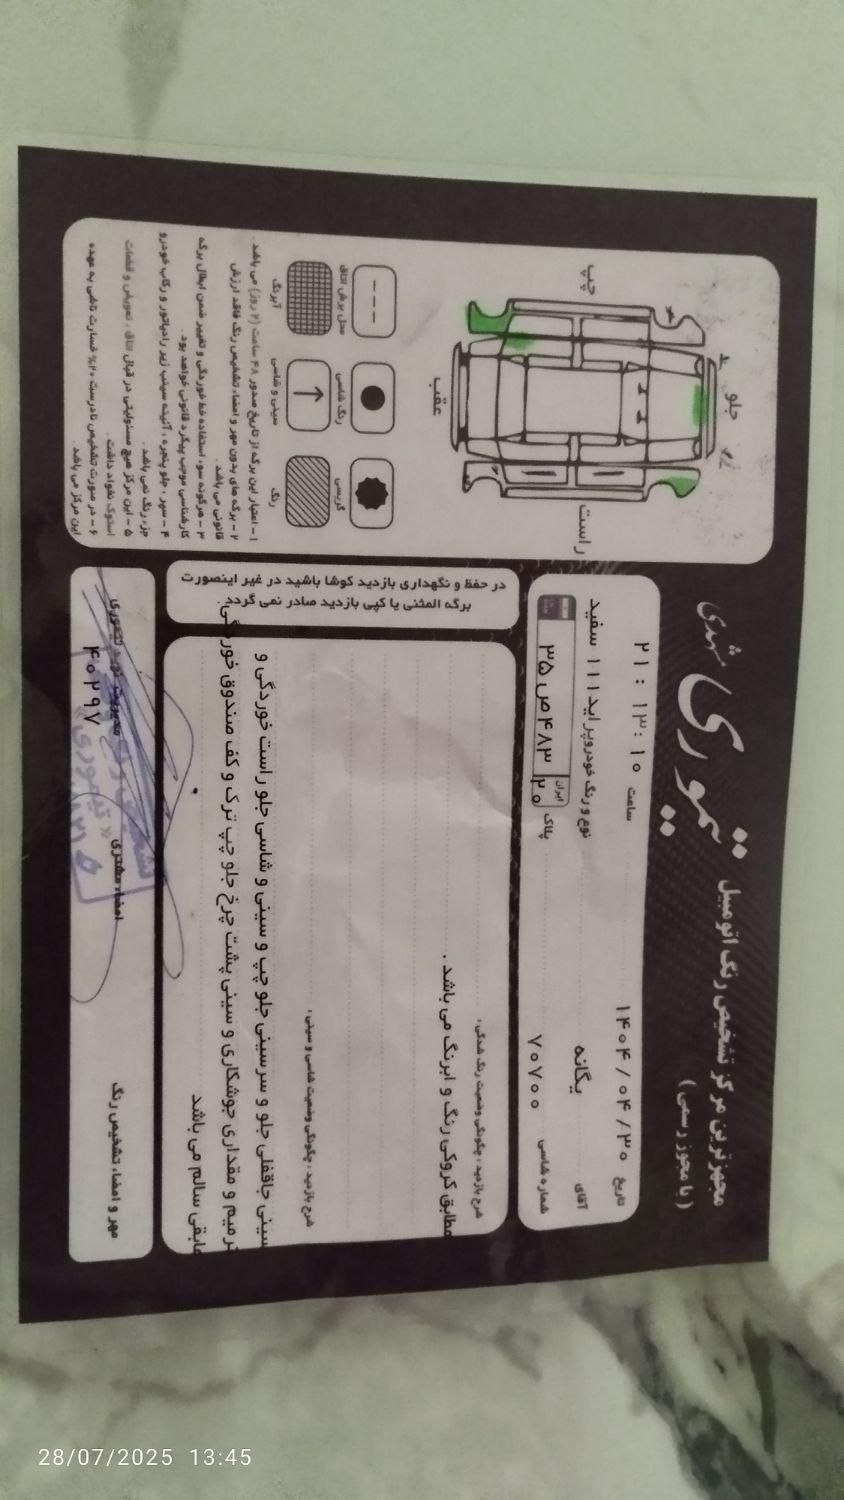 تیموری
مجهزترین مرکز تشخیص رنگ اتومبیل
(با مجوز رسمی)
تاریخ ۱۴۰۴/۰۴/۳۰
ساعت ۲۱:۱۳:۱۰
آقای یگانه
نوع و رنگ خودرو پراید ۱۱۱ سفید
شماره شاسی ۷۰۷۰۰
پلاک ایران ۲۰ ۴۸۳ ص ۳۵
شرح بازدید ، چگونگی وضعیت رنگ شدگی :
مطابق کروکی رنگ و ابرنگ می باشد .
شرح بازدید ، چگونگی وضعیت شاسی و سینی :
سینی جاقفلی جلو و سرسینی جلو چپ و سینی و شاسی جلو راست خوردگی و
ترمیم و مقداری جوشکاری و سینی پشت چرخ جلو چپ ترک و کف صندوق خوردگی
مابقی سالم می باشد
مهر و امضاء تشخیص رنگ
امضاء مشتری
۴۰۲۹۷
در حفظ و نگهداری بازدید کوشا باشید در غیر اینصورت
برگه المثنی یا کپی بازدید صادر نمی گردد.
جلو
چپ
راست
عقب
محل برش اتاق
رنگ شاسی
گریسی
آبرنگ
سینی و شاسی
رنگ
۱ – اعتبار این برگه از تاریخ صدور ۴۸ ساعت (۲ روز) می باشد .
۲ – برگه های بدون مهر و امضاء تشخیص رنگ فاقد ارزش
قانونی می باشد .
۳ – هرگونه سوء استفاده خط خوردگی و تغییر ضمن ابطال برگه
کارشناسی موجب پیگرد قانونی خواهد بود .
۴ – سپر ، جلو پنجره ، آئینه سینی زیر رادیاتور و رکاب خودرو
جزء رنگ نمی باشد .
۵ – این مرکز هیچ مسئولیتی در قبال اتاق ، تعویض و قطعات
استوک نخواهد داشت .
۶ – در صورت تشخیص نادرست ۲۰% خسارت ناشی به عهده
این مرکز می باشد .
28/07/2025 13:45